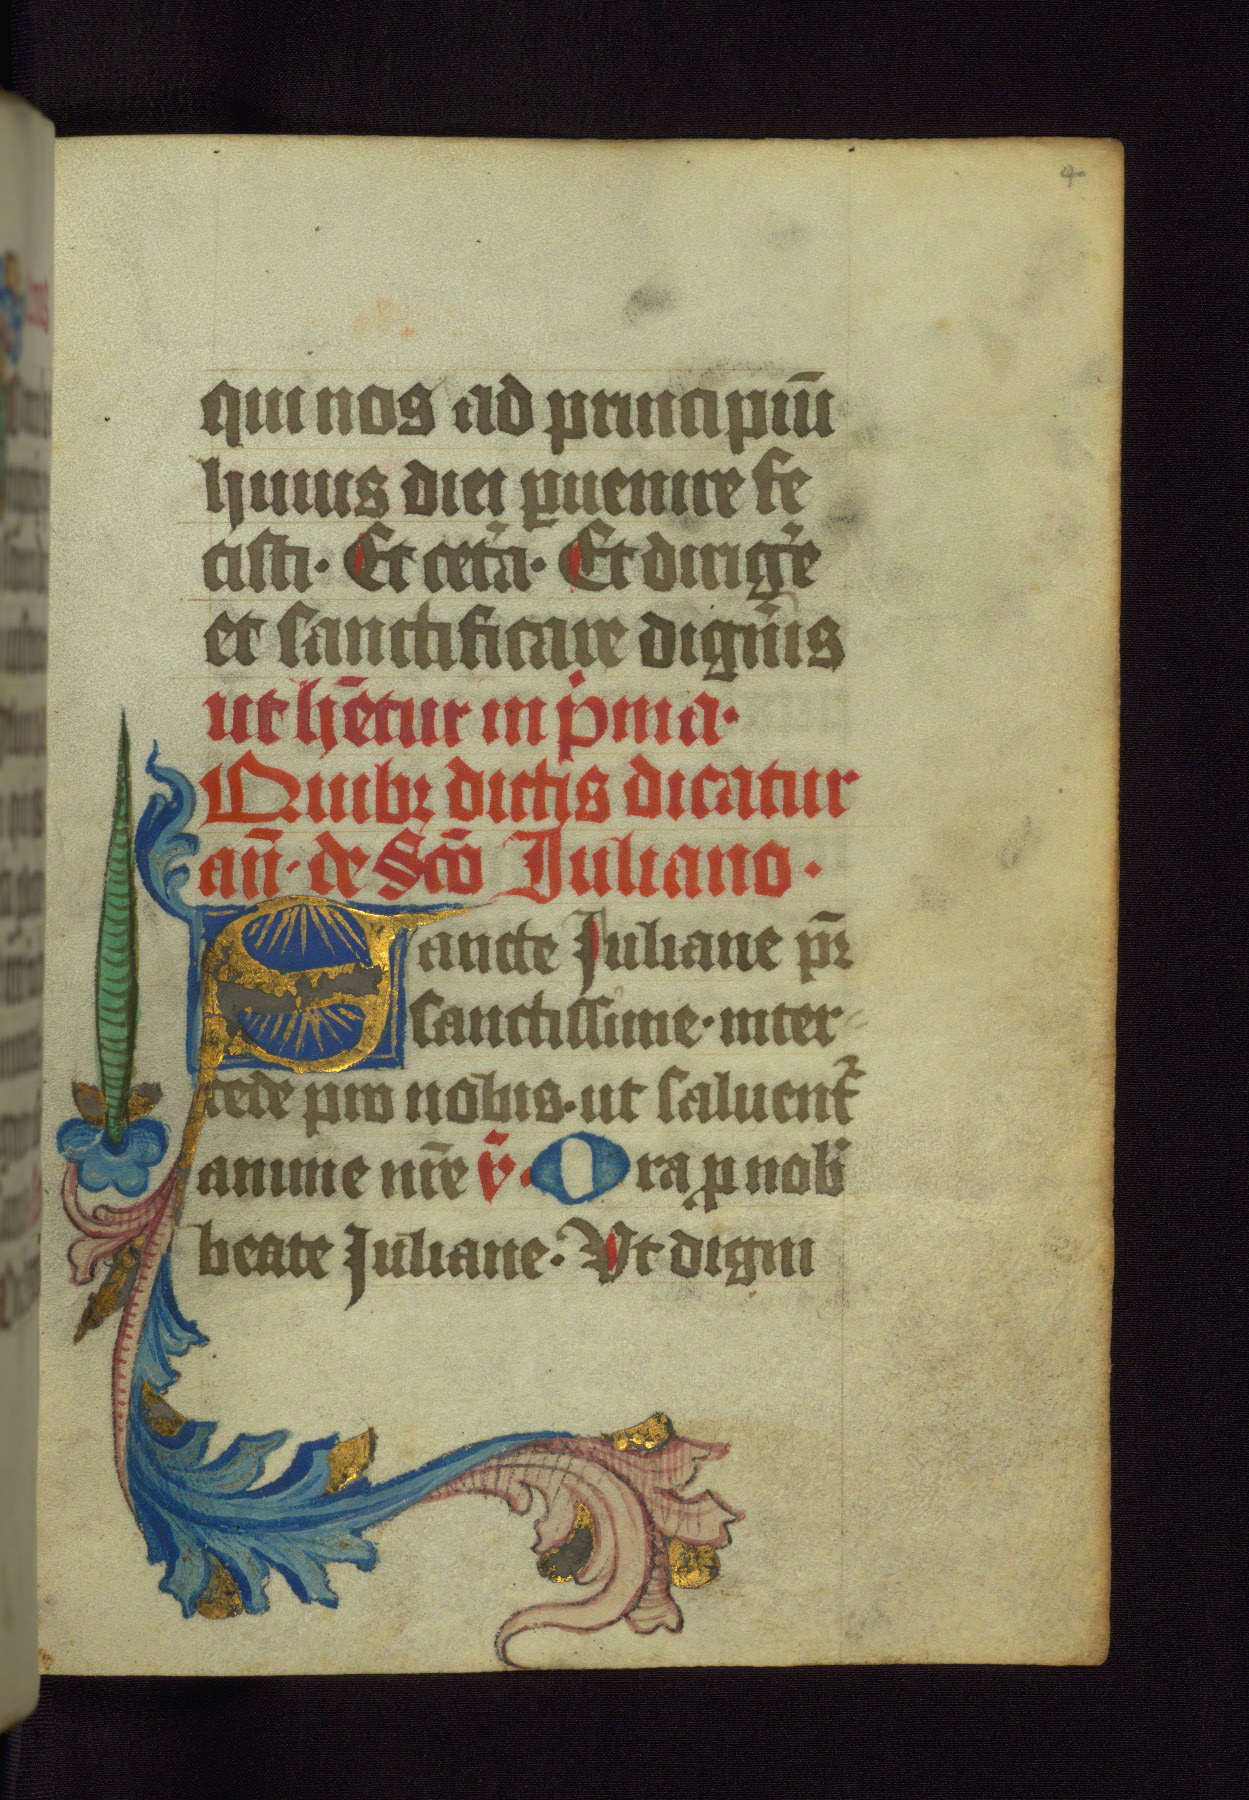 4
qui nos ad principiū
huius diei ꝑuenire fe
cisti. Et cet̾a. Et dirig̾e
et sanctificare digneris
ut hētur in pͥma.
Quibꝫ dictis dicatur
añ. de Sc̄o Juliano.
Sancte Juliane pr̄
sanctissime. inter
cede pro nobis. ut saluent᷑
anime nr̄e ꝟ. Ora ꝓ nob̾
beate Juliane. Vt digni